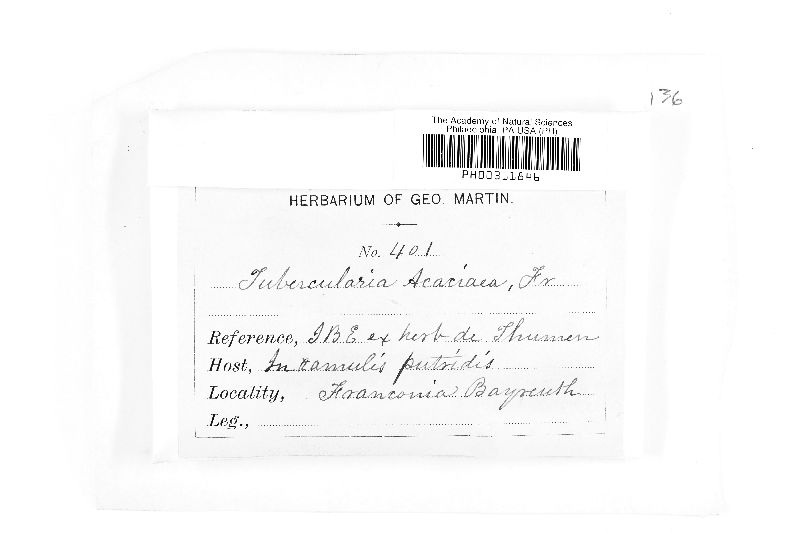 136
The Academy of Natural Sciences
Philadelphia, PA USA (PH)
HERBARIUM OF GEO. MARTIN.
No. 401
Tubercularia Acaciaea, Fr
Reference, JBE ex herb de Thumen
Host, In ramulis putridis
Locality, Franconia Bayreuth
Leg.,